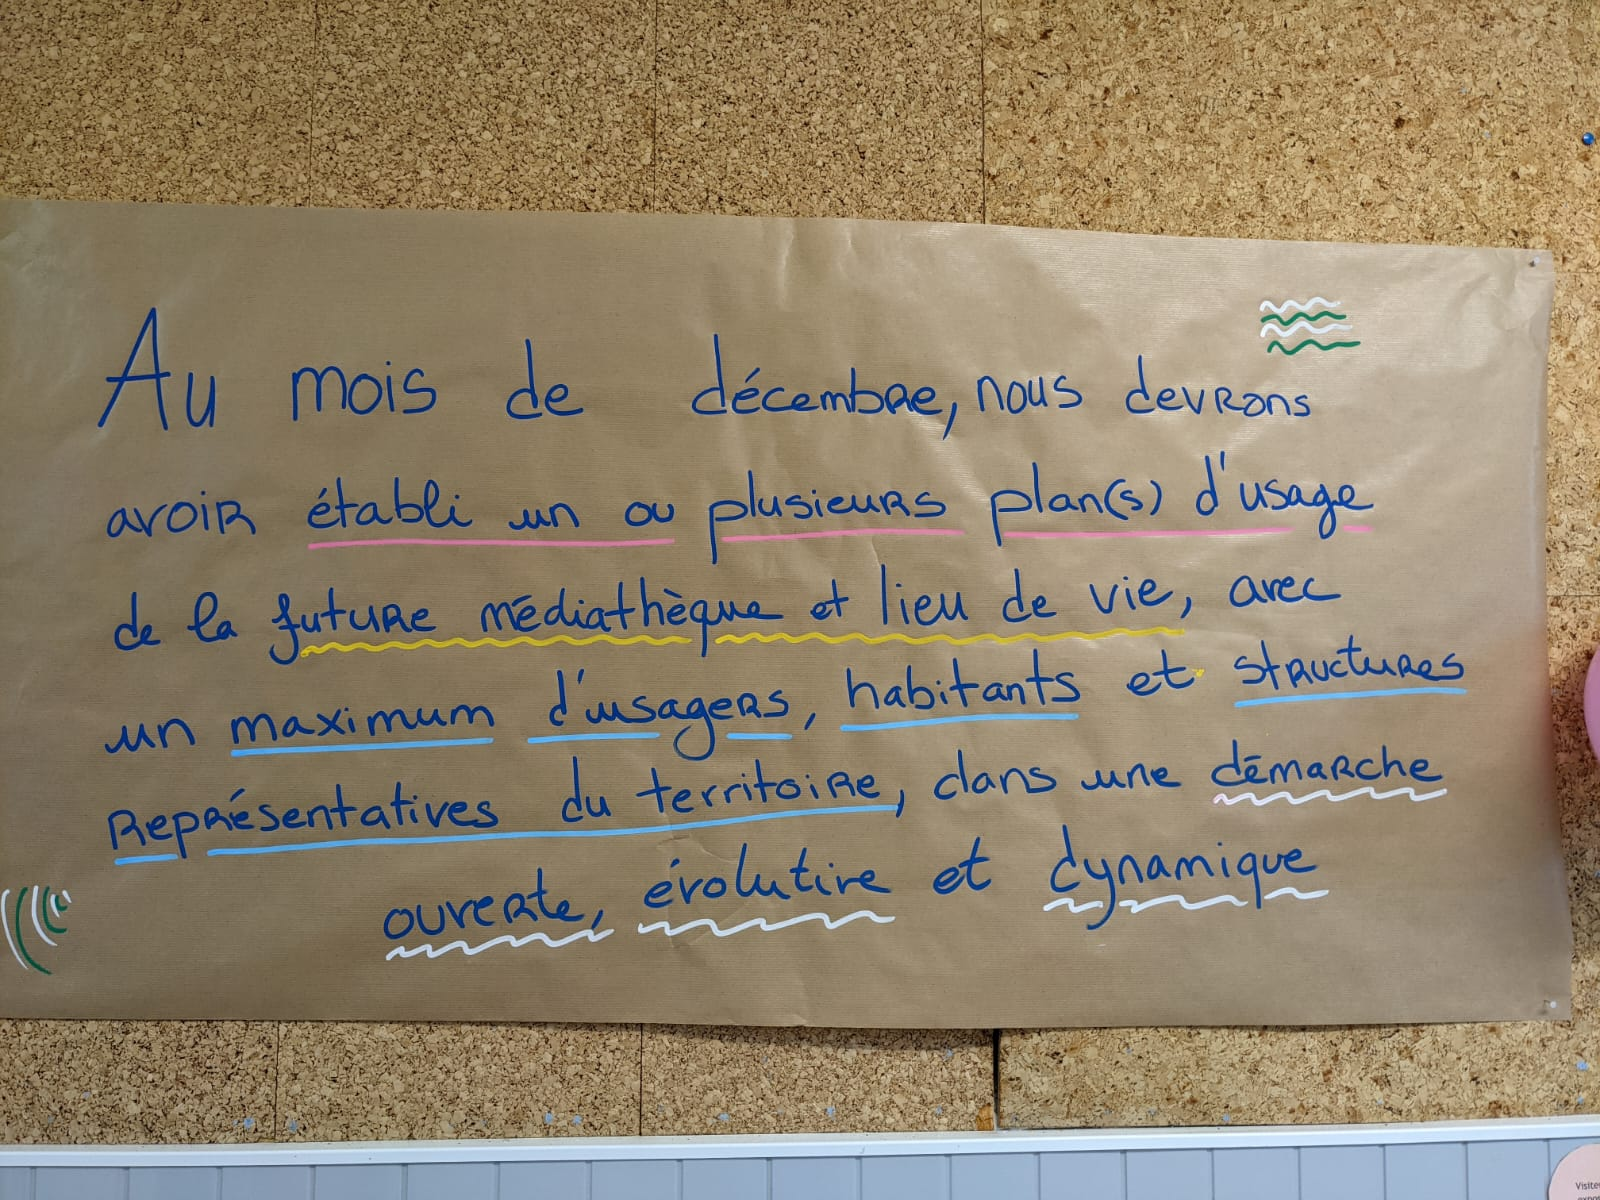 Au mois de décembre, nous devrons
avoir établi un ou plusieurs plan(s) d'usage
de la future médiathèque et lieu de vie, avec
un maximum d'usagers, habitants et structures
représentatives du territoire, dans une démarche
ouverte, évolutive et dynamique